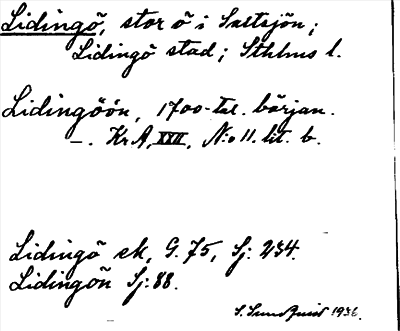 Lidingö, stor ö i Saltsjön;
Lidingö stad; Sthlms l.
Lidingöön, 1700-tal. början.
–. KrA, XVII, N:o 11. lit. b.
Lidingö sk, G. 75, Sj: 234.
Lidingön Sj: 88.
S. Sundquist 1936.